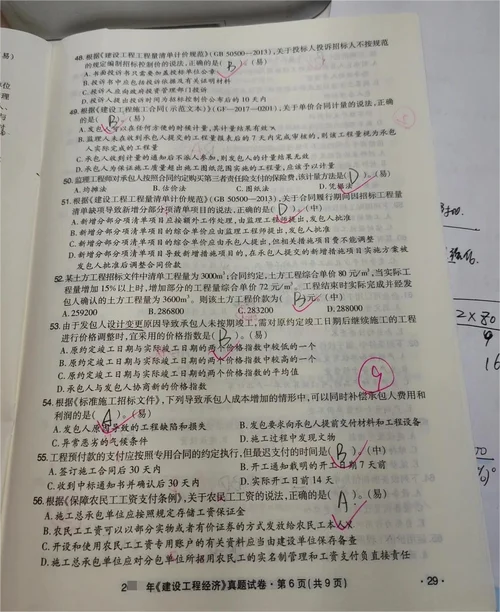 48.根据《建设工程工程量清单计价规范》(GB 50500—2013),关于投标人投诉招标人不按规范
的规定编制招标控制价的说法,正确的是( B )。(易)
A.书面投诉书只需要加盖投标单位公章
B.投诉书中应包括投诉依据及有关证明材料
C.投诉人应向政府投资管理部门投诉
D.投诉人提出投诉时间为招标控制价公布后的10天内
49.根据《建设工程施工合同(示范文本)》(GF—2017—0201),关于单价合同计量的说法,正确
的是( B )。(易)
A.发包人可以在任何方便的时候计量,其计量结果有效
B.监理人未在收到承包人提交的工程量报表后的7天内完成审核的,则该工程量视为承包
人实际完成的工程量
C.承包人收到计量的通知后不派人参加,则发包人的计量结果无效
D.承包人为保证施工质量超出施工图纸范围实施的工程量,应该予以计量
50.监理工程师对承包人按照合同约定购买第三者责任险支付的保险费,该计量方法是( D )。(易)
A.均摊法 B.估价法 C.图纸法 D.凭据法
51.根据《建设工程工程量清单计价规范》(GB 50500—2013),关于合同履行期间因招标工程量
清单缺项导致新增分部分项清单项目的说法,正确的是( D )。(中)
A.新增分部分项清单项目应按额外工作处理,由监理工程师提出,发包人批准
B.新增分部分项清单项目的综合单价应由监理工程师提出,发包人批准
C.新增分部分项清单项目的综合单价应由承包人提出,但相关措施项目费不能调整
D.新增分部分项清单项目导致新增措施项目的,在承包人提交的新增措施项目实施方案被
发包人批准后调整合同价款
52.某土方工程招标文件中清单工程量为3000m³;合同约定,土方工程综合单价80元/m³,当实际工
程量增加15%以上时,增加部分的工程量综合单价72元/m³。工程结束时实际完成并经发
包人确认的土方工程量为3600m³。则该土方工程价款为( )元。(中)
A.259200 B.286800 C.283200 D.288000
53.由于发包人设计变更原因导致承包人未按期竣工,需对原约定竣工日期后继续施工的工程
进行价格调整时,宜采用的价格指数是( B )。(中)
A.原约定竣工日期与实际竣工日期的两个价格指数中较低的一个
B.原约定竣工日期与实际竣工日期的两个价格指数中较高的一个
C.原约定竣工日期与实际竣工日期的两个价格指数的平均值
D.承包人与发包人协商新的价格指数
9
54.根据《标准施工招标文件》,下列导致承包人成本增加的情形中,可以同时补偿承包人费用和
利润的是( A )。(易)
A.发包人原因导致的工程缺陷和损失 B.发包要求向承包人提前交付材料和工程设备
C.异常恶劣的气候条件 D.施工过程中发现文物
55.工程预付款的支付应按照专用合同的约定执行,但最迟支付的时间是( B )。(中)
A.签订施工合同后30天内 B.开工通知载明的开工日期7天前
C.收到中标通知书并确认后30天内 D.实际开工日前14天
56.根据《保障农民工工资支付条例》,关于农民工工资的说法,正确的是( A )。(易)
A.施工总承包单位应按照规定存储工资保证金
B.农民工工资可以以部分实物或者有价证券的方式发放给农民工本人
C.开设和使用农民工工资专用账户的有关资料应当由建设单位保存备查
D.施工总承包单位应对分包单位所招用农民工的实名制管理和工资支付负直接责任
年《建设工程经济》真题试卷·第6页(共9页) ·29·
2×80